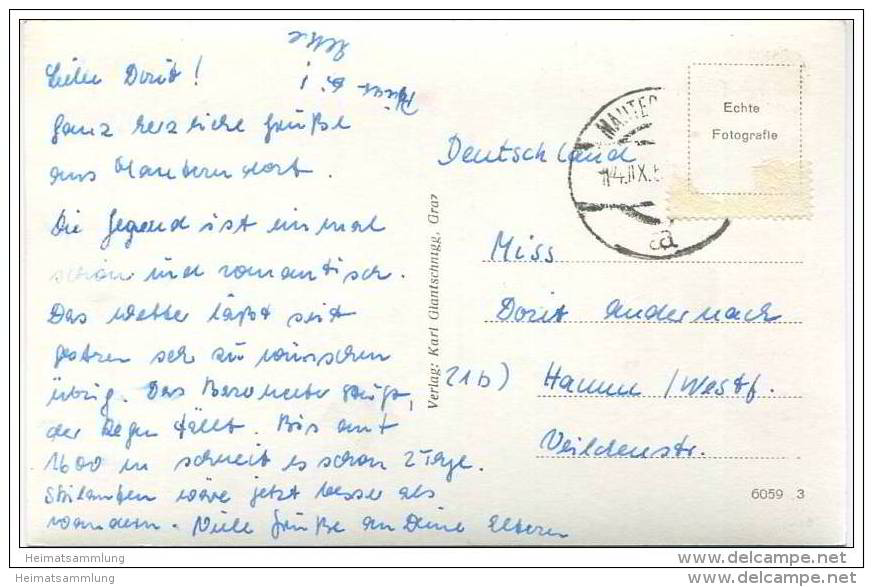 Liebe Dorit!
Ganz herzliche Grüße
aus Mauterndorf.
Die Gegend ist einmal
schön und romantisch.
Das Wetter läßt seit
gestern sehr zu wünschen
übrig. Das Barometer steigt,
der Regen fällt. Bis auf
1600 m schneit es schon 2 Tage.
Skilaufen wäre jetzt besser als
wandern. Viele Grüße an Deine Eltern
Verlag: Karl Glantschnigg, Graz
Echte
Fotografie
Deutschland
Miss
Dorit Andernach
21b) Hamm /Westf.
Veilchenstr.
6059 3
Heimatsammlung
Heimatsammlung
www.delcampe.net
www.delcampe.net